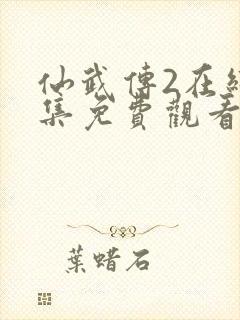 仙武傳2在
集免費觀看
葉蜡石